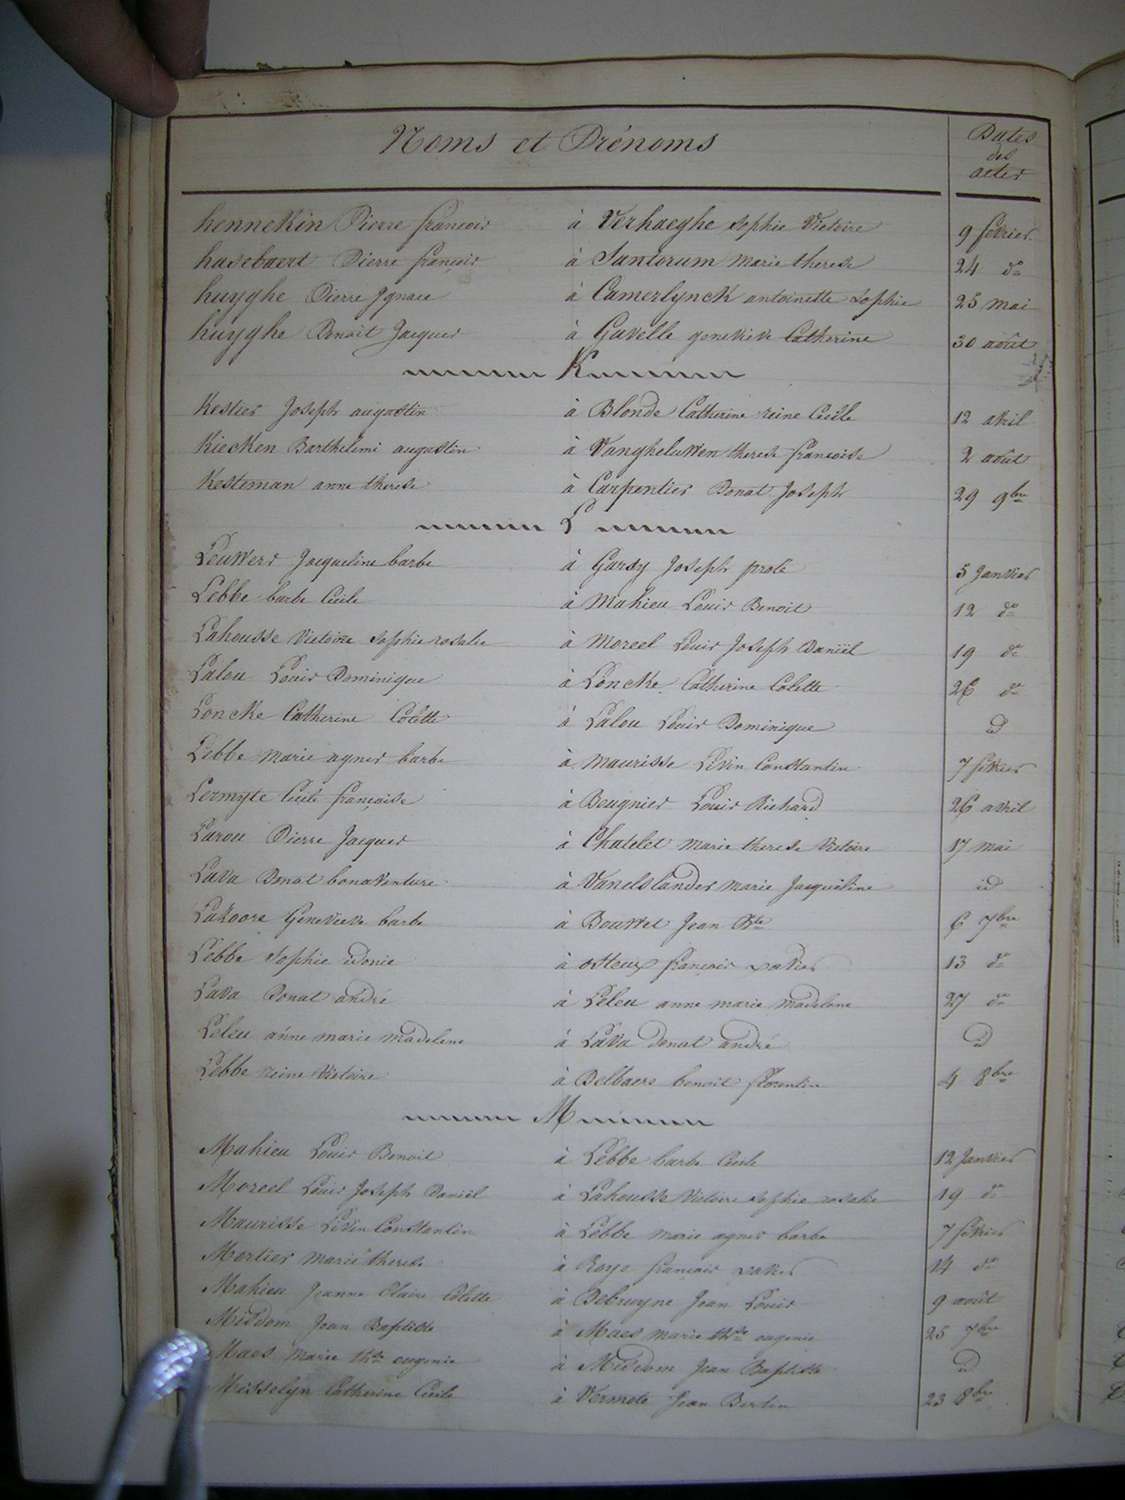 Noms et Prénoms
Dates
des
actes
hennekin Pierre françois à Verhaeghe Sophie Victoire 9 février
hasebaert Pierre françois à Santorum marie therese 24 do
huyghe Pierre Ignace à Camerlynck antoinette Sophie 25 mai
huyghe Benoit Jacques à Gavelle genevieve Catherine 30 août
K
Kestier Joseph augustin à Blonde Catherine reine Cecile 12 avril
Kiecken Barthelemi augustin à Vangheluwen therese françoise 2 août
Kesteman anne therese à Carpentier Donat Joseph 29 9bre
L
Leuwers Jacqueline barbe à Garsy Joseph prote 5 Janvier
Lebbe barbe Cecile à Mahieu Louis Benoit 12 do
Lahousse Victoire Sophie rosalie à Moreel Louis Joseph Daniël 19 do
Lalou Louis Dominique à Loncke Catherine Colette 26 do
Loncke Catherine Colette à Lalou Louis Dominique id
Lebbe marie agnes barbe à Maurisse Livin Constantin 7 février
Lermyte Cecile françoise à Beugnier Louis Richard 26 avril
Larou Pierre Jacques à Chatelet marie therese Victoire 17 mai
Lava Donat bonaventure à Vanelslander marie Jacqueline id
Lakoore Genevieve barbe à Bouwet Jean Bte 6 7bre
Lebbe Sophie idonie à osteux françois xavier 13 do
Lava Donat andré à Leleu anne marie madelene 27 do
Leleu anne marie madelene à Lava donat andré id
Lebbe reine Victoire à Belbaere benoit florentin 4 8bre
M
Mahieu Louis Benoit à Lebbe barbe Cecile 12 Janvier
Moreel Louis Joseph Daniël à Lahousse Victoire Sophie rosalie 19 do
Maurisse Livin Constantin à Lebbe marie agnes barbe 7 février
Mortier marie therese à Roys françois xavier 14 do
Mahieu Jeanne Claire Colette à Debruyne Jean Louis 9 août
Misdom Jean Baptiste à Maes marie thse eugenie 25 7bre
Maes marie thse eugenie à Misdom Jean Baptiste id
Misselyn Catherine Cecile à Vermote Jean Bertin 23 8bre